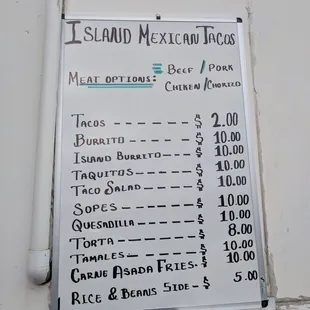 Island Mexican Tacos
Meat options: Beef / Pork
Chiken / Chorizo
Tacos - - - - - - - - $ 2.00
Burrito - - - - - - - $ 10.00
Island Burrito - - - - $ 10.00
Taquitos - - - - - - $ 10.00
Taco Salad - - - - - $ 10.00
Sopes - - - - - - - - $ 10.00
Quesadilla - - - - - - $ 10.00
Torta - - - - - - - - $ 8.00
Tamales - - - - - - - $ 10.00
Carne Asada Fries - $ 10.00
Rice & Beans Side - $ 5.00